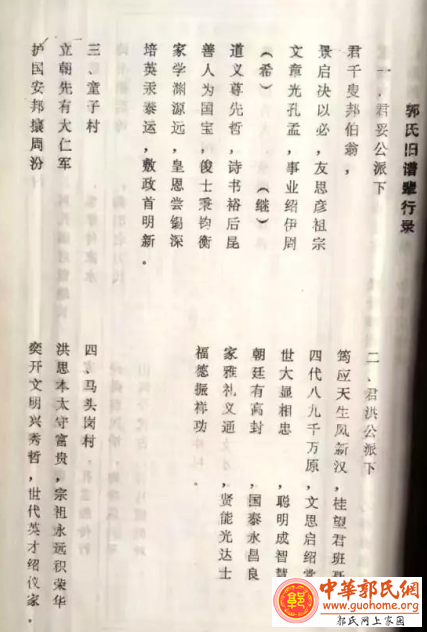 郭氏旧谱辈行录
一、君妥公派下
君千叟邦伯翁，
景启决以必，友思彦祖宗
文章光孔孟，事业绍伊周
（希）（继）
道义尊先哲，诗书裕后昆
善人为国宝，俊士秉钧衡
家学渊源远，皇恩尝锡深
培英汞泰运，敷政首明新。
三、童子村
立朝先有大仁军
护国安邦攘周汾
二、君洪公派下
筠应天生凤新汉，桂望君班
四代八九千万原，文思启绍
世大显相忠，聪明成智慧
朝廷有高封，国泰永昌良
家雅礼义通，贤能光达士
福德振祥功。
四、马头岗村
洪思本太守富贵，宗祖永远积荣华
奕开文明兴秀哲，世代英才绍仪家。
中華郭氏網
www.guohome.org
郭氏网上家园